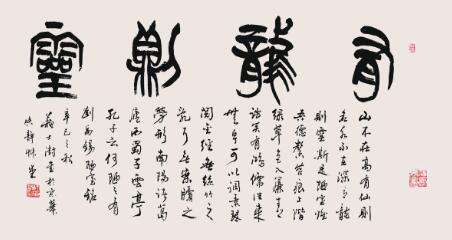 有龍則靈
山不在高有仙則
名水不在深有龍
則靈斯是陋室惟
吾德馨苔痕上階
綠草色入簾青
談笑有鴻儒往來
無白丁可以調素琴
閱金經無絲竹之
亂耳無案牘之
勞形南陽諸葛
廬西蜀子雲亭
孔子云何陋之有
劉禹錫陋室銘
辛巳之秋
於京華